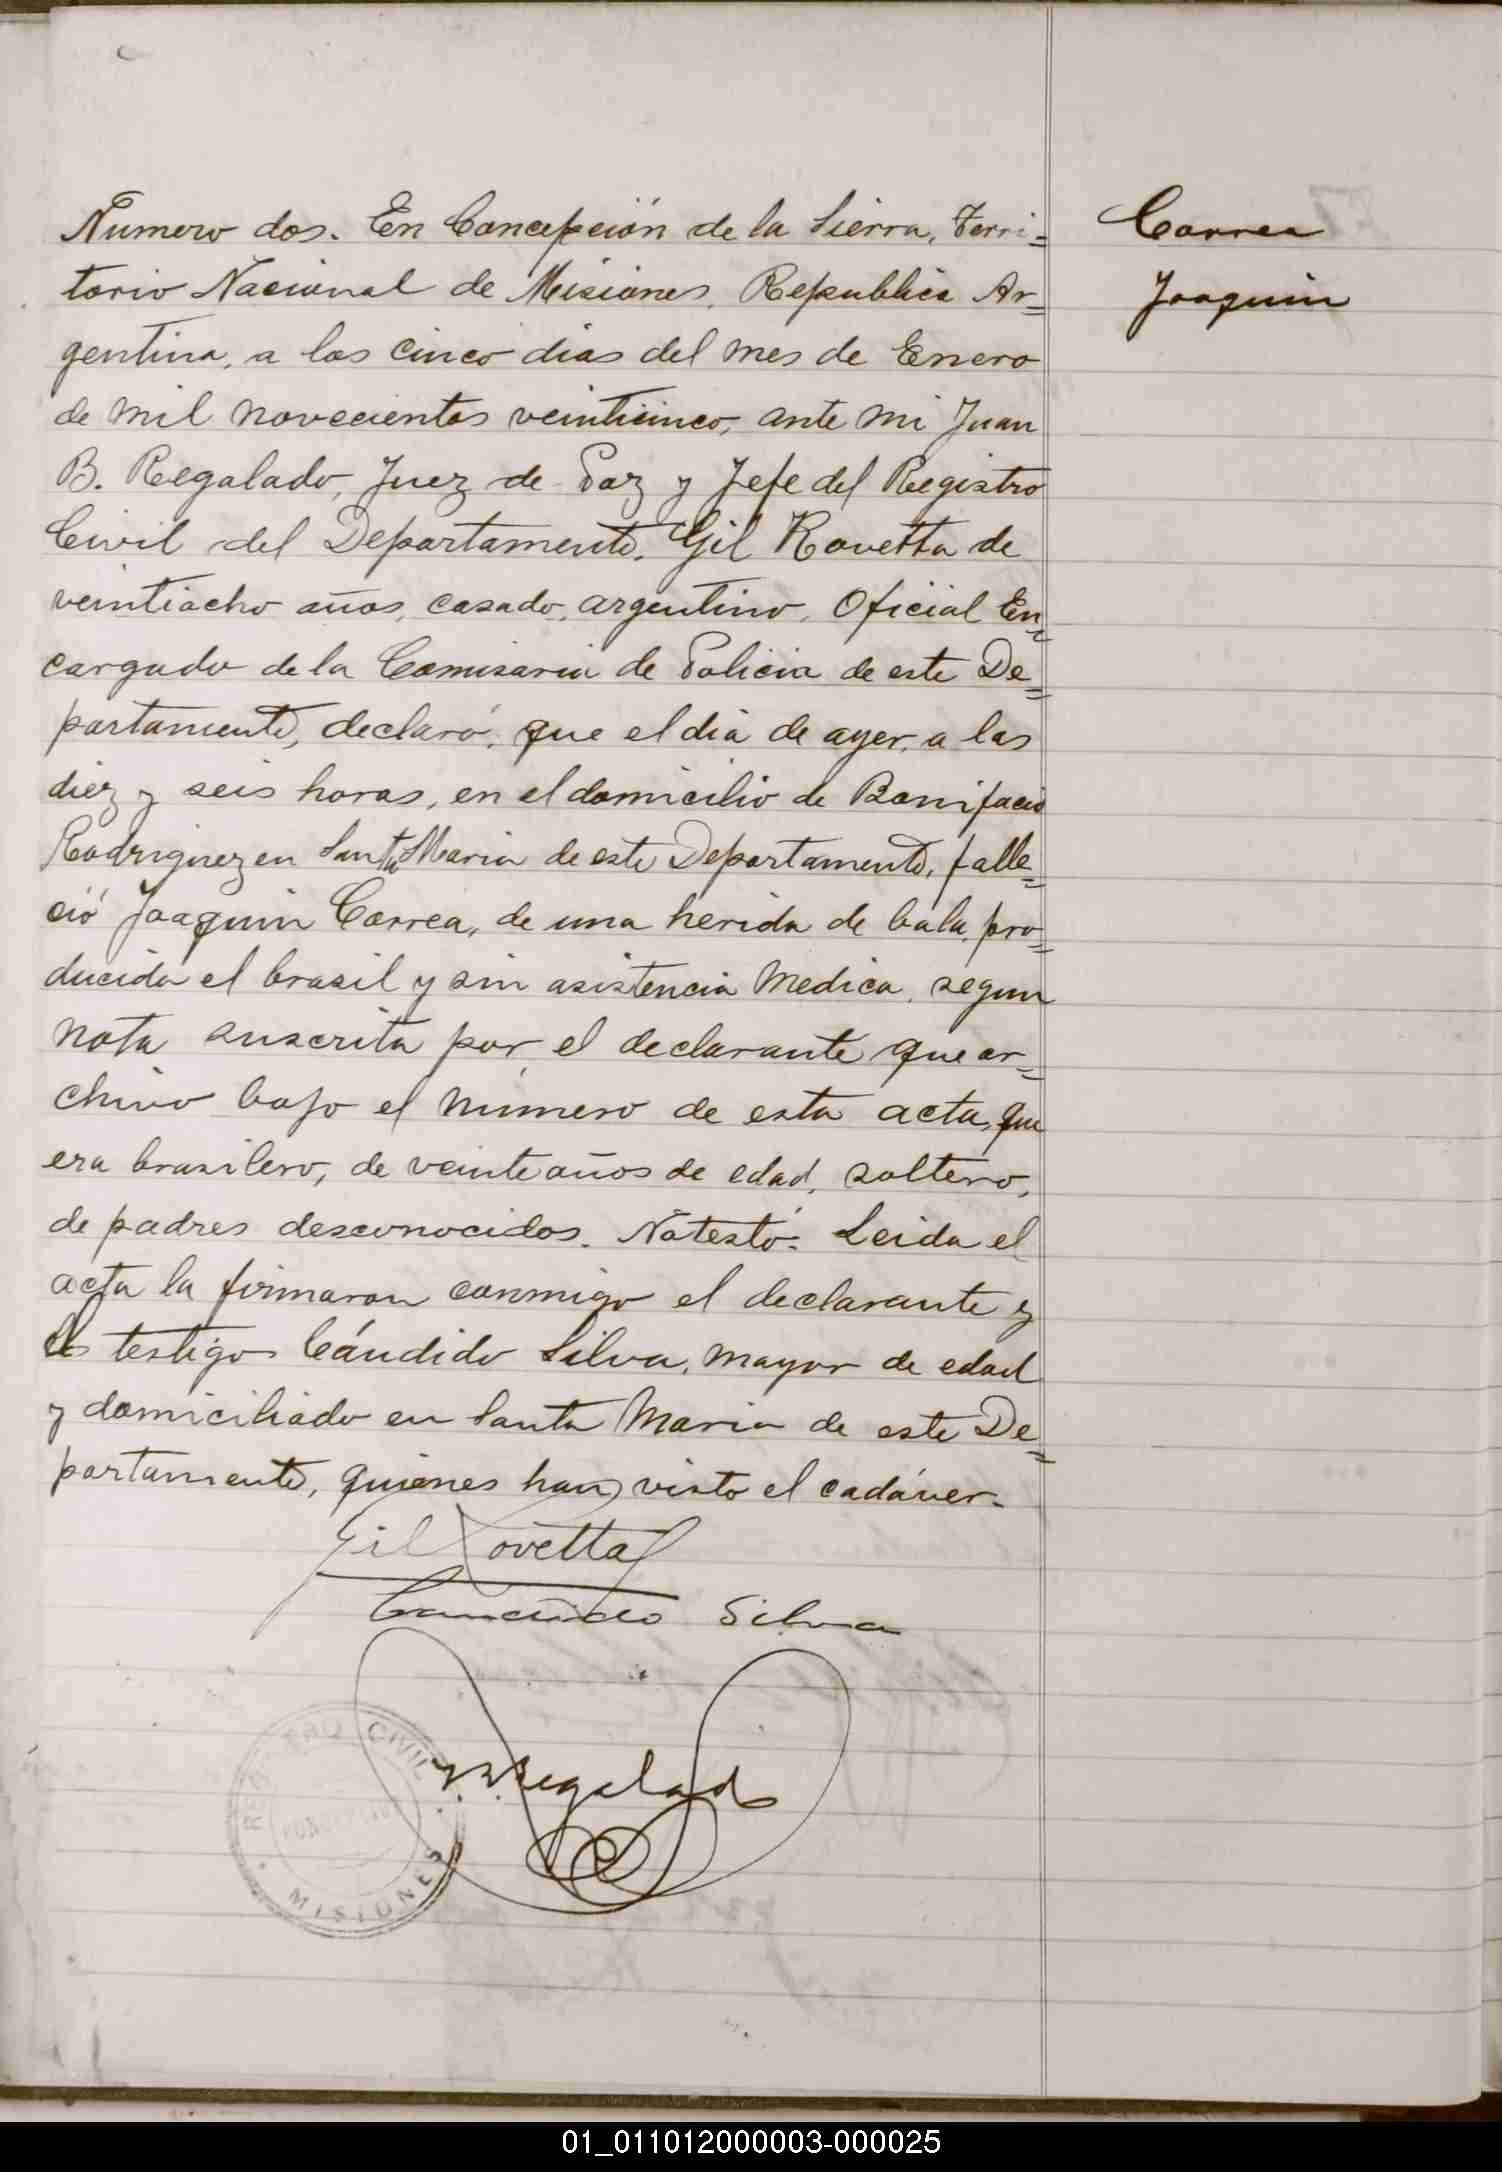 Numero dos. En Concepción de la Sierra, Terri=
torio Nacional de Misiones, Republica Ar=
gentina, a los cinco dias del mes de Enero
de mil novecientos veinticinco, ante mi Juan
B. Regalado, Juez de Paz y Jefe del Registro
Civil del Departamento. Gil Rovetta de
veintiocho años, casado, argentino, Oficial En=
cargado de la Comisaria de Policia de este De=
partamento, declaró: que el dia de ayer, a las
diez y seis horas, en el domicilio de Bonifacio
Rodriguez en Santa Maria de este Departamento, falle=
ció Joaquin Correa, de una herida de bala, pro=
ducida el brasil y sin asistencia medica, segun
nota suscrita por el declarante que ar=
chivo bajo el número de esta acta, que
era brasilero, de veinte años de edad, soltero,
de padres desconocidos. No testó. Leida el
acta la firmaron conmigo el declarante y
el testigo Cándido Silva, mayor de edad
y domiciliado en Santa Maria de este De=
partamento, quienes han visto el cadáver.
Gil Rovetta
Candido Silva
J. B. Regalado
REGISTRO CIVIL
CONCEPCION
MISIONES
Correa
Joaquin
01_011012000003-000025